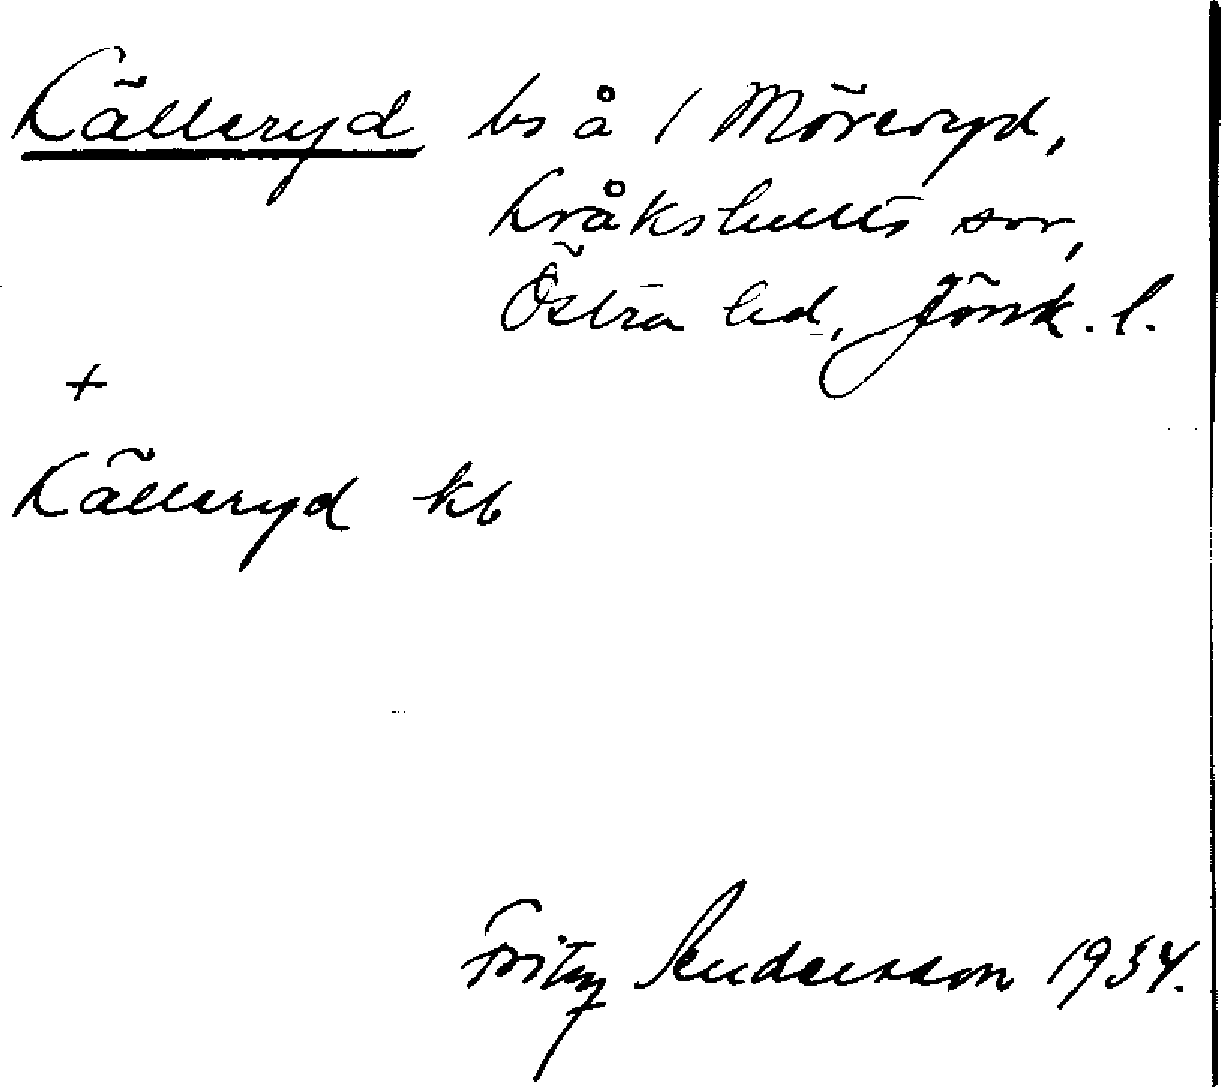 Källeryd bs å / Möreryd,
Kråkshults sn,
Östra hd, Jönk. l.
+
Källeryd kb
Fritz Andersson 1934.